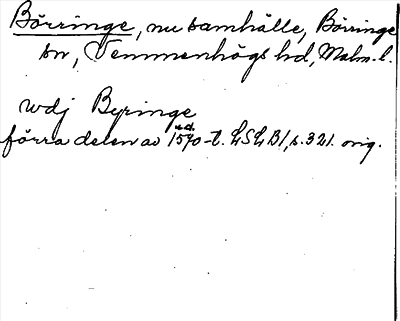 Börringe, nu samhälle, Börringe
sn, Vemmenhögs hd, Malm. l.
wdj Byringe
u.d.
förra delen av 1570-t. LSLB1, s. 321. orig.